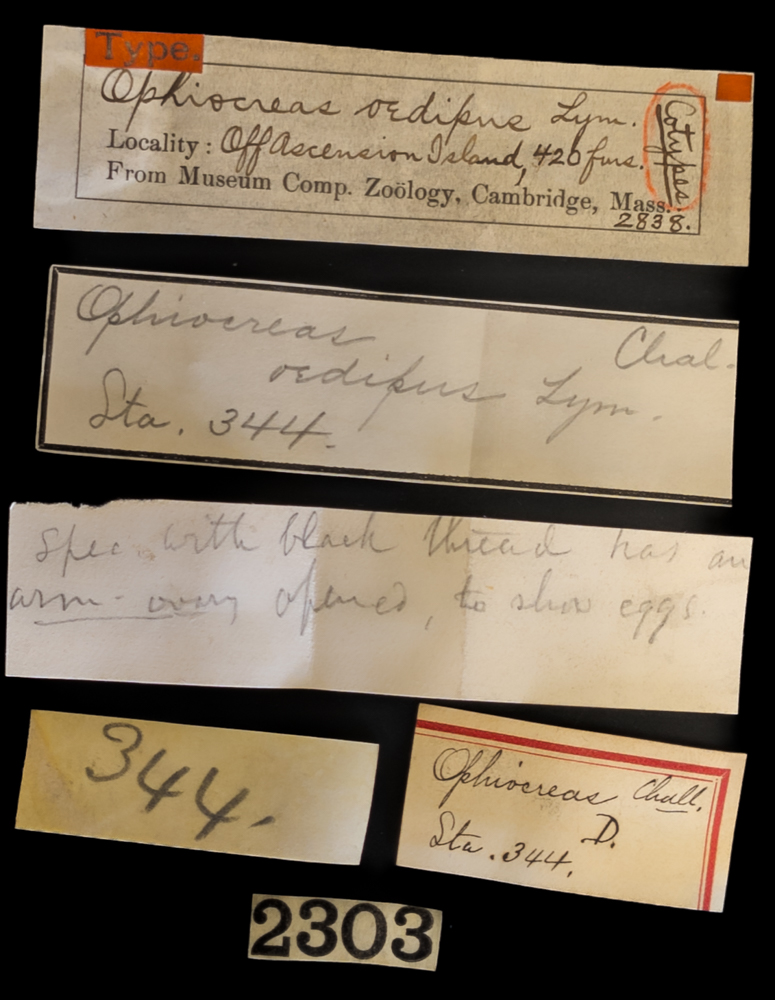 Type.
Ophiocreas oedipus Lym.
Cotypes
Locality: Off Ascension Island, 420 fms.
From Museum Comp. Zoölogy, Cambridge, Mass.
2838.
Ophiocreas Chal.
oedipus Lym.
Sta. 344.
spec with black thread has an
arm-ovary opened, to show eggs.
344.
Ophiocreas Chall.
D.
Sta. 344.
2303